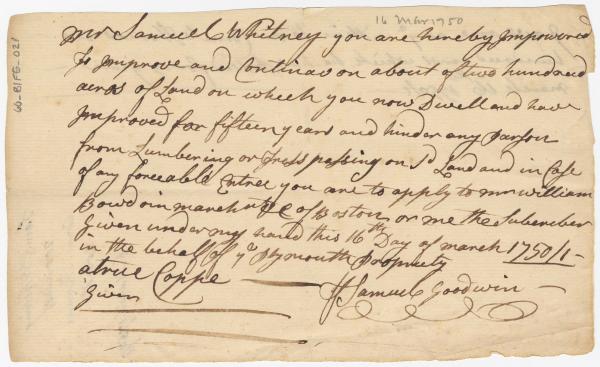 16 Mar 1750
60-BIFG-021
Mr Samuel Whitney you are hereby Impowered
To Improve and Continav on about of two hundred
acros of Land on wheeh you now Dwell and have
Improved for fifteen years and hinder any parson
from Lumbering or Tresspassing on sd Land and in Case
of any forceable Entree you are to apply to mr William
Bowdoin march of Boston or me the Subcriber
Given under my hand this 16th Day of march 1750/1-
in the behalf of ye Plymouth Propriety
a true Coppe
Given
Samuel Goodwin